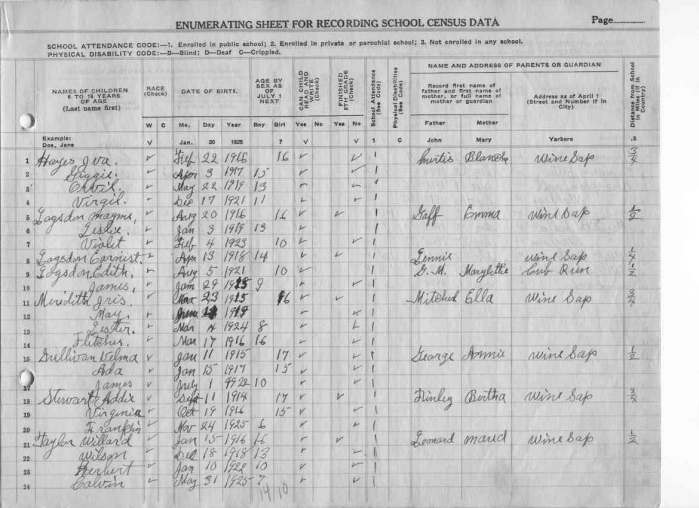 ENUMERATING SHEET FOR RECORDING SCHOOL CENSUS DATA Page
SCHOOL ATTENDANCE CODE:—1. Enrolled in public school; 2. Enrolled in private or parochial school; 3. Not enrolled in any school.
PHYSICAL DISABILITY CODE:—B—Blind; D—Deaf C—Crippled.
NAMES OF CHILDREN 6 TO 18 YEARS OF AGE (Last name first)
RACE (Check)
DATE OF BIRTH.
AGE BY SEX AS OF JULY 1 NEXT
CAN CHILD READ AND WRITE (Check)
FINISHED 8TH GRADE (Check)
School Attendance (See Code)
Physical Disabilities (See Code)
NAME AND ADDRESS OF PARENTS OR GUARDIAN
Record first name of father and first name of mother, or full name of mother or guardian
Address as of April 1 (Street and Number if in City)
Distance from School in Miles (If in Country)
W C Mo. Day Year Boy Girl Yes No Yes No Father Mother
Example: Doe, Jane V Jan. 20 1925 7 V V 1 C John Mary Yorkers .5
1 Hayes Iva. Feb 22 1916 16 1 Curtis Blanch Wine Sap 3/4
2 Apr 3 1917 15
3 May 22 1919 13
4 Virgil. Dec 17 1921 11
5 Logsdon Mayme, Aug 20 1916 16 Gaff Emma Wine Sap 1/2
6 Leslie. Jan 3 1919 13
7 Violet Feb 4 1923 10
8 Logsdon Earnist. Apr 13 1918 14 Lennie wine Sap
9 Logsdon Edith. Aug 5 1921 10 G. M. Cub Run
10 James, Jan 29 9
11 Meridith Iris. Mar 23 1915 16 Mitchel Ella Wine Sap 3/4
12 May.
13 Lester. Mar 1924 8
14 Fletcher. Mar 17 1916 16
15 Sullivan Velma Jan 11 1915 17 George Annie wine Sap 1/2
16 Ada Jan 15 1917 15
17 James July 1 1922 10
18 Stewart Addie Sept 11 1914 17 Finley Bertha Wine Sap 3/4
19 Virginia Oct 19 1916 15
20 Franklin Nov 24 1925 6
21 Taylor Willard Jan 15 1916 16 Leonard Maud Wine Sap 1/2
22 Wilson Dec 18 1918 13
23 Herbert Jan 10 10
24 Calvin May 31 1925 7
14 10